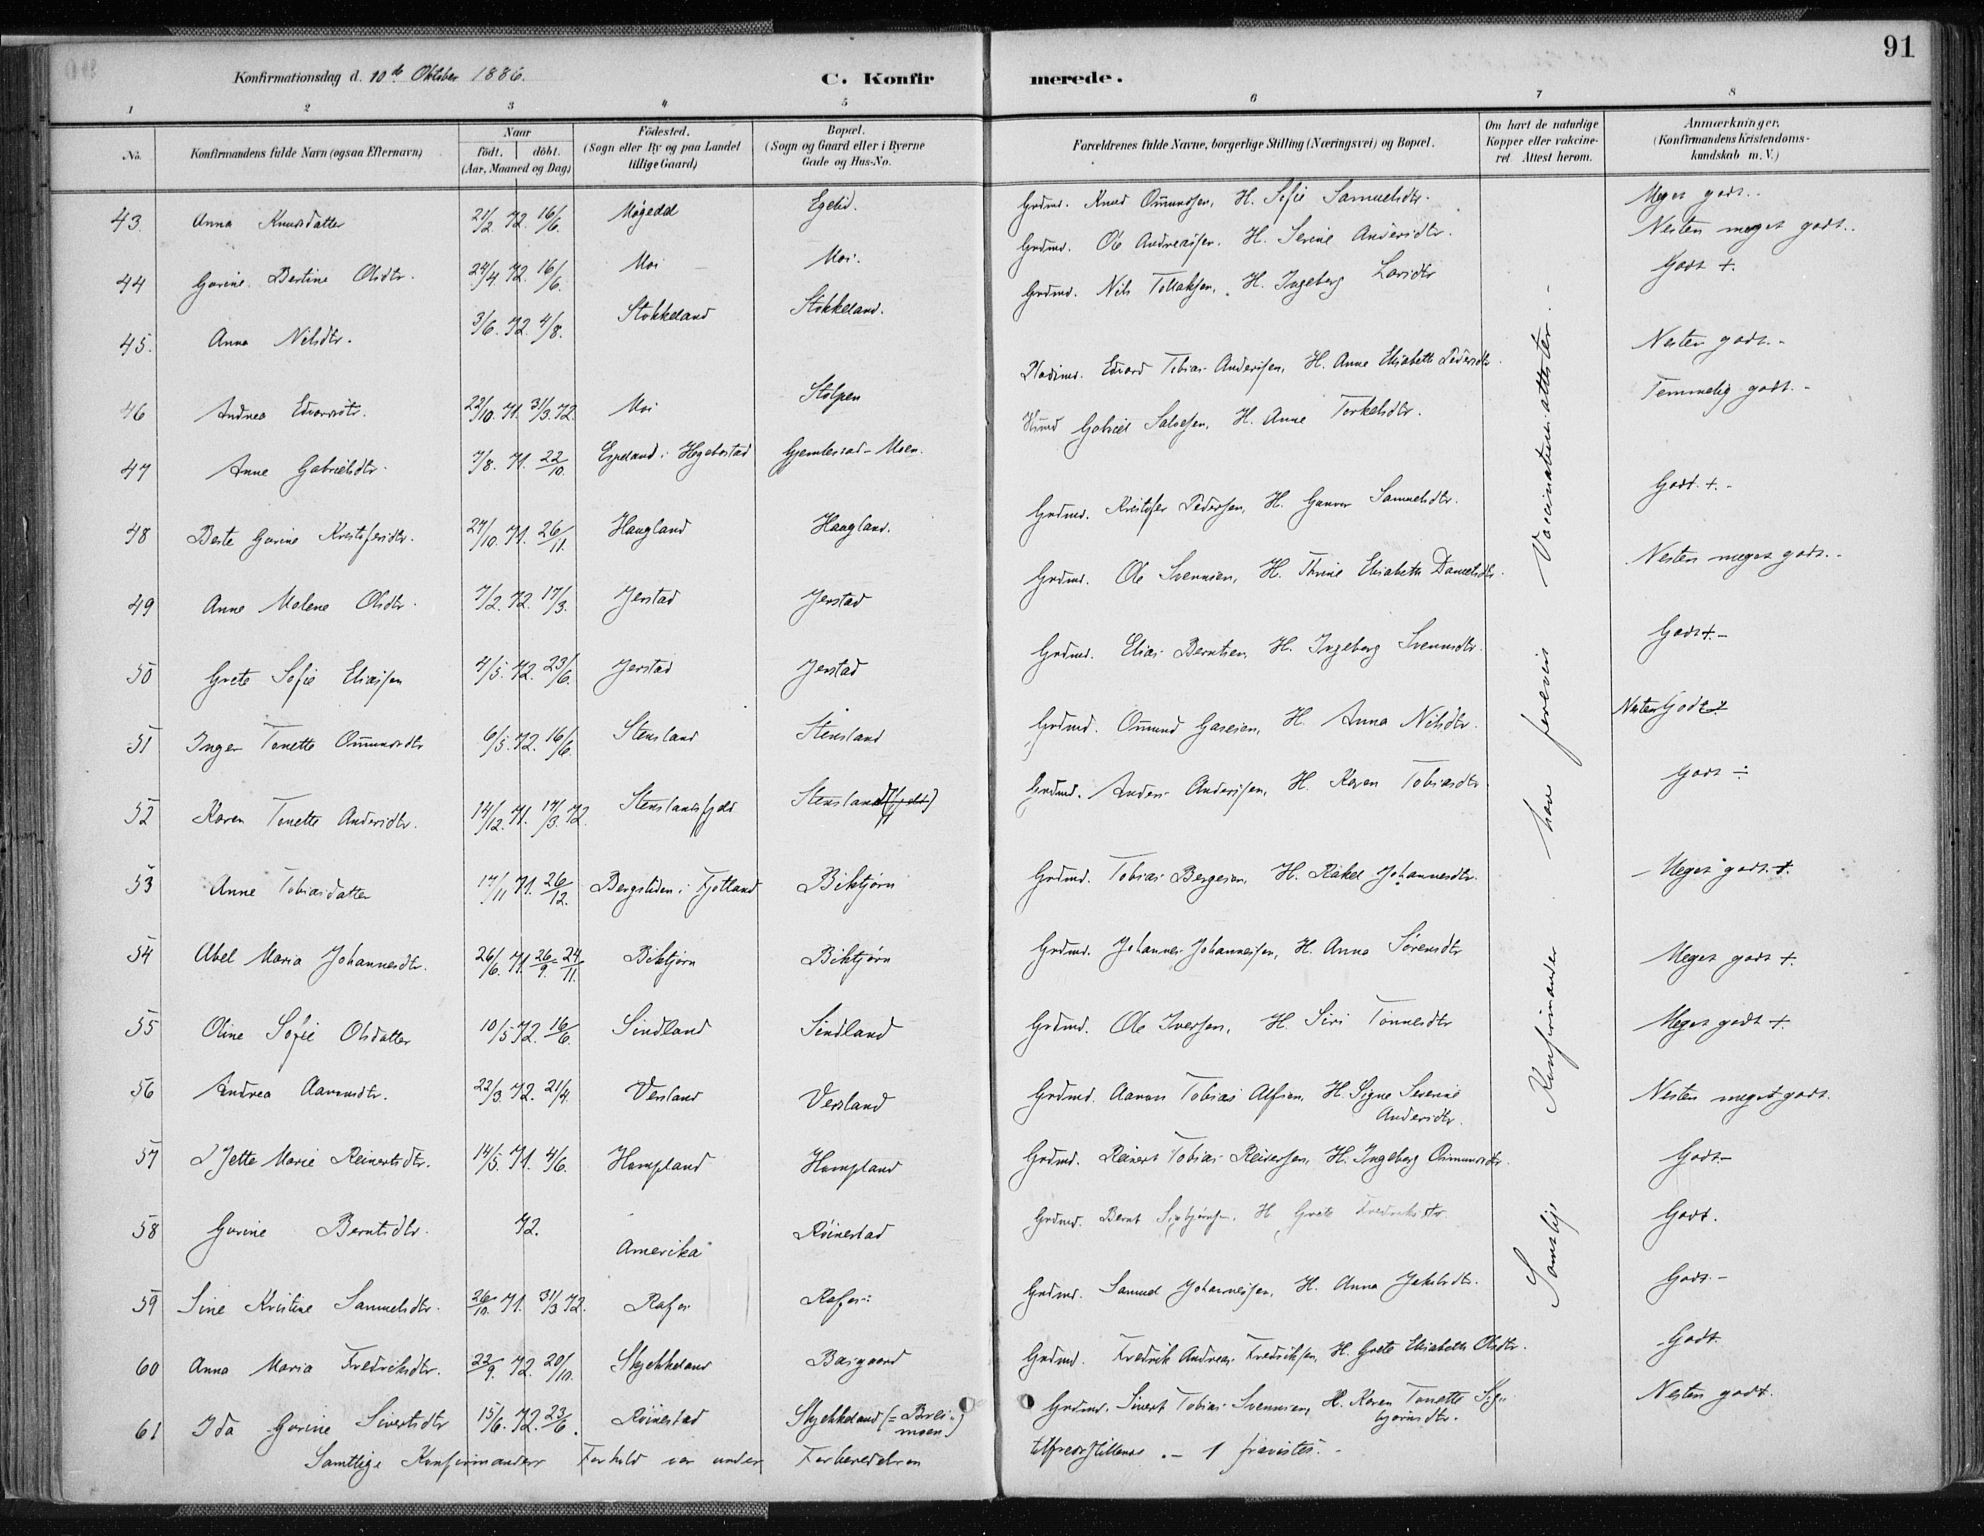 91
Konfirmationsdag d. 10de Oktober 1886.
C. Konfirmerede.
1 2 3 4 5 6 7 8
No.
Konfirmandens fulde Navn (ogsaa Efternavn)
Naar
födt. döbt.
(Aar, Maaned og Dag)
Födested.
(Sogn eller By og paa Landet
tillige Gaard)
Bopæl.
(Sogn og Gaard eller i Byerne
Gade og Hus-No.
Forældrenes fulde Navne, borgerlige Stilling (Næringsvei) og Bopæl.
Om havt de naturlige
Kopper eller vakcine-
ret. Attest herom.
Anmærkninger.
(Konfirmandens Kristendoms-
kundskab m. V.)
43. Anna Knudsdatter 21/2. 72. 16/6. Møgedal Egelid. Grdmd. Knud Omundsen, H. Sofie Samuelsdtr. Meget godt.
44 Gurine Bertine Olsdtr. 24/4. 72. 16/6. Moi Moi. Grdmd. Ole Andreassen. H. Serine Andersdtr. Nesten meget godt.
45. Anna Nilsdtr. 3/6. 72. 4/8. Stokkeland Stokkeland. Grdmd. Nils Tollaksen, H. Ingeborg Larsdtr Godt +.
46 Andrea Edvardsdtr. 22/10. 71. 31/3. 72. Moi Stolpen Pladsmd. Edvard Tobias Andersen, H. Anne Elisabeth Pedersdtr. Nesten godt.
47 Anne Gabrielsdtr. 7/8. 71. 22/10. Egeland i Hegebostad Gjemlestad-Moen. Husmd Gabriel Salvesen, H. Anne Torkelsdtr. Temmelig godt.
48 Berte Gurine Kristofersdtr. 27/10. 71. 26/11. Haugland Haugland. Grdmd. Kristofer Pedersen, H. Gunvor Samuelsdtr. Godt +.
49 Anne Malene Olsdtr. 7/2. 72. 17/3. Jerstad Jerstad Grdmd. Ole Svennsen, H. Thrine Elisabeth Danielsdtr. Nesten meget godt.
50 Grete Sofie Eliassen 4/5. 72. 23/6. Jerstad Jerstad Grdmd. Elias Berntsen, H. Ingeborg Svennsdtr. Godt +.
51 Inger Tonette Omundsdtr 6/5. 72. 16/6. Stensland Stensland Grdmd. Omund Gasesen, H. Anna Nilsdtr. Nesten Godt
52 Karen Tonette Andersdtr. 14/12. 71. 17/3. 72. Stenslandsfjeld Stensland(fjeld) Grdmd. Anders Andersen, H. Karen Tobiasdtr. Godt ÷
53 Anne Tobiasdatter 17/11 71. 26/12. Bergsliden i Fjotland Birktjørn Grdmd. Tobias Bergesen, H. Rakel Johannesdtr. Meget godt. +.
54 Abel Maria Johannesdtr. 26/6. 71. 26/9. 24/11. Birktjørn Birktjørn Grdmd. Johannes Johannessen, H. Anna Sørensdtr Meget godt +.
55 Oline Sofie Olsdatter 10/5 72. 16/6. Sindland Sindland Grdmd. Ole Iversen, H. Siri Tønnesdtr Meget godt +.
56 Andrea Aaronsdtr. 22/3. 72. 21/4. Versland Versland Grdmd. Aaron Tobias Alfsen, H. Signe Severine Andersdtr. Nesten meget godt.
57 Jette Marie Reinertsdtr. 14/5. 71. 4/6. Hompland Hompland Grdmd. Reinert Tobias Reinertsen, H. Ingeborg Omundsdtr. Godt
58 Gurine Berntsdtr. 72. Amerika Røinestad Grdmd. Bernt Sigbjørnsen, H. Grete Fredriksdtr Godt.
59 Sine Kristine Samuelsdtr. 26/10. 71. 31/3 72. Rafos Rafos Grdmd. Samuel Johannessen, H. Anna Jakobsdtr. Godt.
60 Anna Maria Fredriksdtr. 22/9. 72. 20/10. Skjekkeland Baasgaard Grdmd. Fredrik Andreas Fredriksen, H. Grete Elisabeth Olsdtr. Godt
61 Ida Gurine Sivertsdtr 15/6. 72. 23/6. Røinestad Skjekkeland (= Breimoen) Grdmd. Sivert Tobias Svennsen, H. Karen Tonette Sigbjørnsdtr. Nesten godt.
Samtlige Konfirmander have foreviist Vaccinationsattester.
Samtlige Konfirmanders Forhold var under Forberedelsen tilfredsstillende. – 1 fravistes.